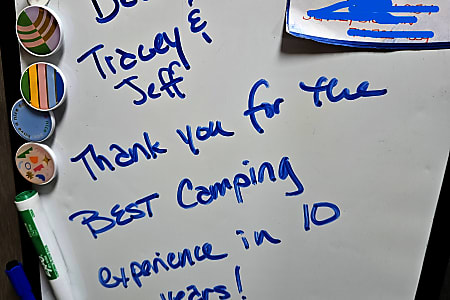 Tracey &
Jeff
Thank you for the
BEST Camping
experience in 10
years!